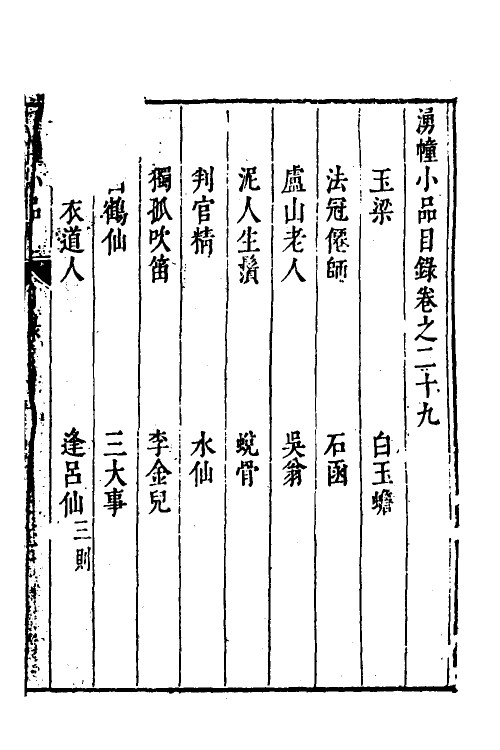 湧幢小品目錄卷之二十九
玉梁 白玉蟾
法冠僊師 石函
盧山老人 吳翁
泥人生鬚 蛻骨
判官精 水仙
獨孤吹笛 李金兒
鶴仙 三大事
衣道人 逢呂仙三則
小品